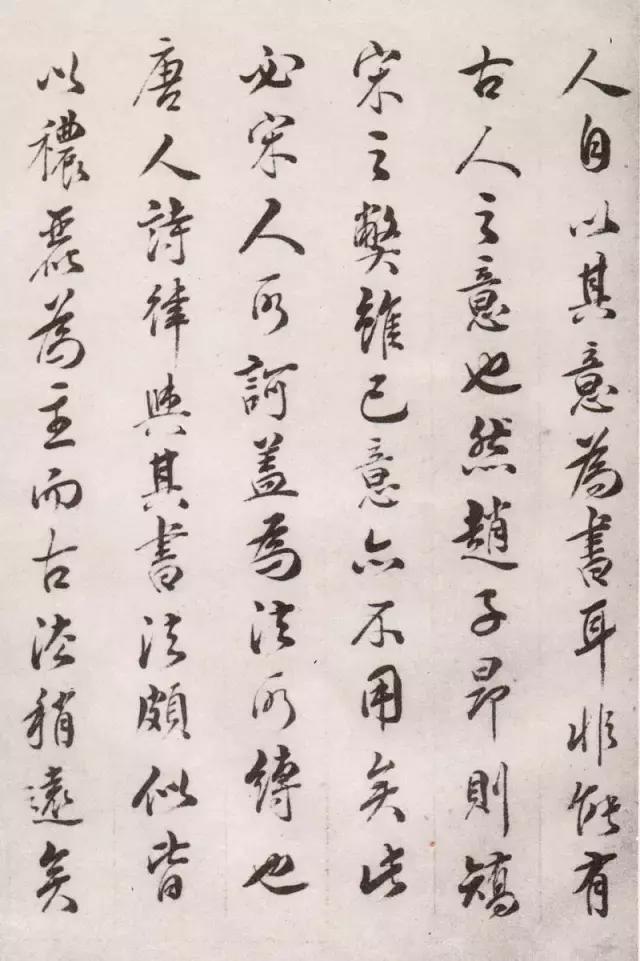 人自以其意為書耳非能有
古人之意也然趙子昂則矯
宋之弊雖己意亦不用矣此
必宋人所訶蓋為法所縛也
唐人詩律與其書法頗似皆
以禯麗為主而古法稍遠矣